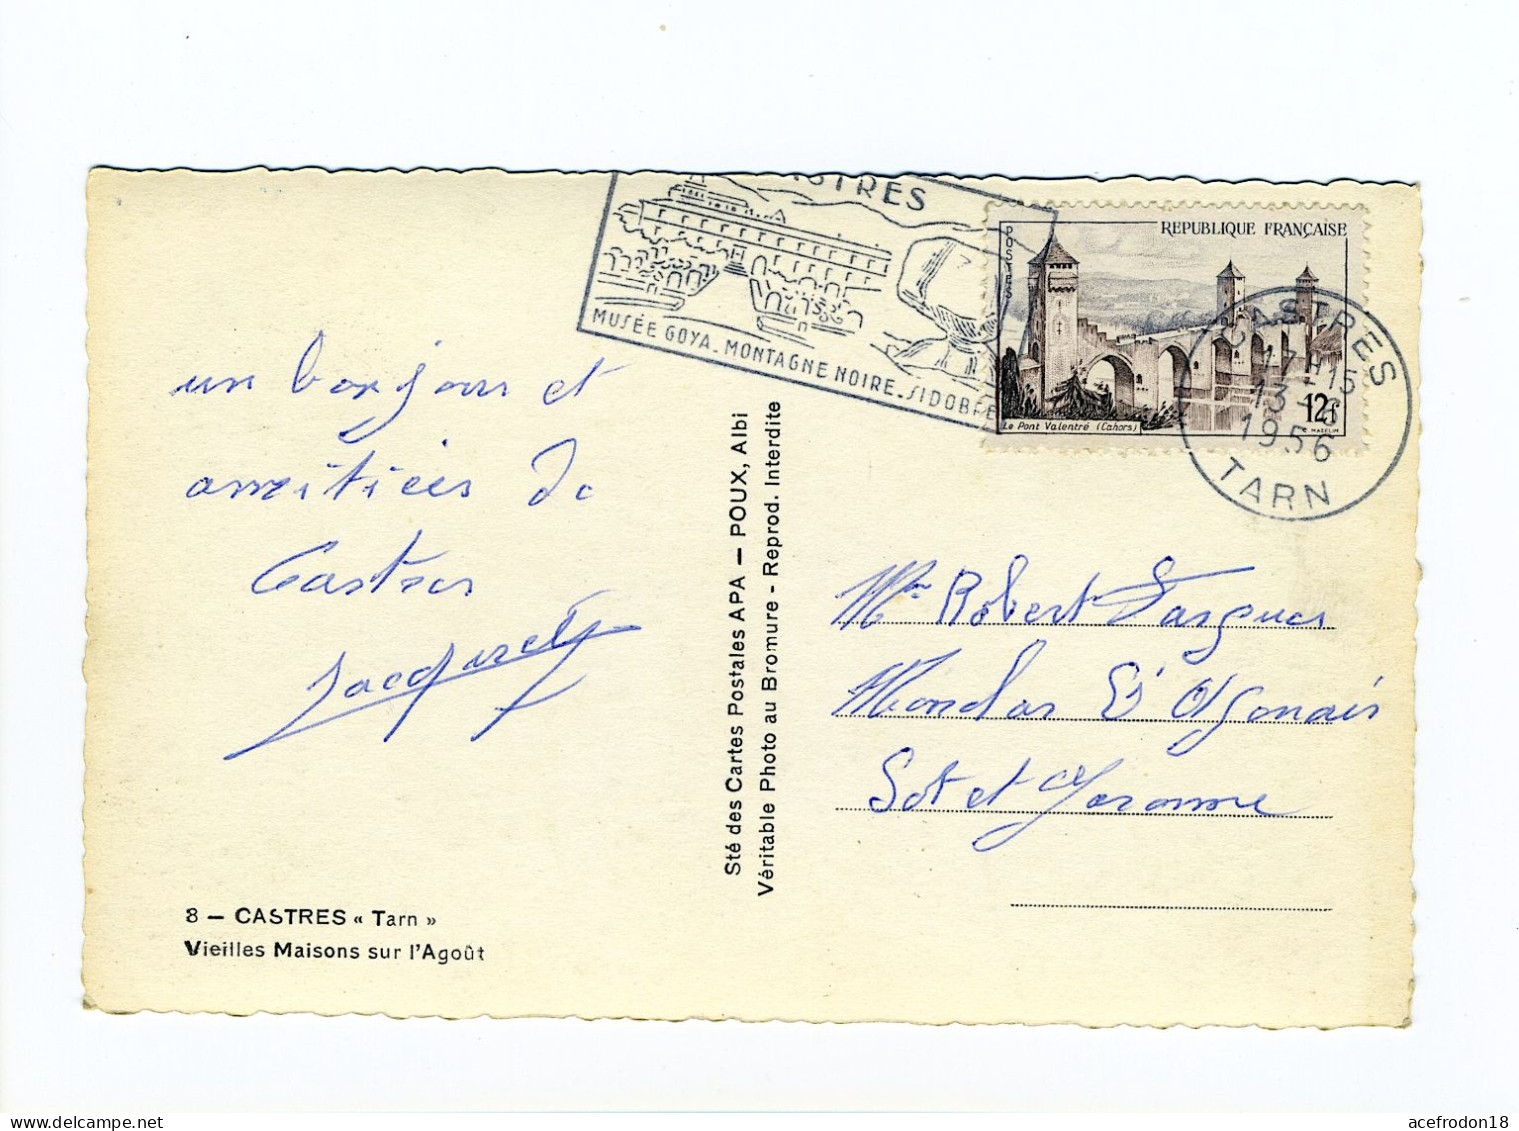 CASTRES
MUSÉE GOYA - MONTAGNE NOIRE - SIDOBRE
POSTES
REPUBLIQUE FRANÇAISE
12f
Le Pont Valentré (Cahors)
C. MAZELIN
CASTRES
17H15
13-8
1956
TARN
un bonjour et
amitiées de
Castres
Jacquesety
Sté des Cartes Postales APA — POUX, Albi
Véritable Photo au Bromure - Reprod. Interdite
Mr Robert Fargues
Monclar d'Agenais
Lot et Garonne
8 — CASTRES « Tarn »
Vieilles Maisons sur l'Agoût
acefrodon18